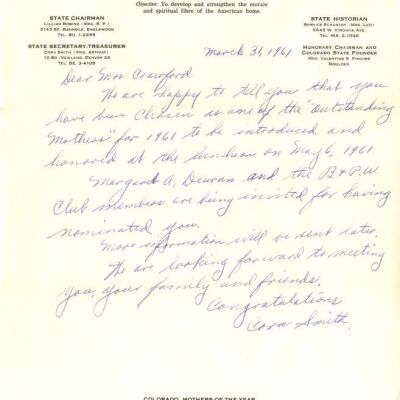 Objective: To develop and strengthen the morale
and spiritual fibre of the American home.
STATE CHAIRMAN
Lillian Robing (Mrs. R. P.)
3145 So. Bannock, Englewood
Tel. SU. 1-2698
STATE SECRETARY-TREASURER
Cora Smith (Mrs. Arthur)
10 So. Newland, Denver 26
Tel. BE. 3-4108
STATE HISTORIAN
Bernice Schuster (Mrs. Leo)
5645 W. Virginia Ave.
Tel. WA. 2-1048
Honorary Chairman and
Colorado State Founder
Mrs. Valentine B. Fischer
Boulder
March 31, 1961
Dear Mrs Crawford
We are happy to tell you that you
have been Chosen as one of the "Outstanding
Mothers" for 1961 to be introduced and
honored at the luncheon on May 6, 1961.
Margaret A. Dewan and the B+P.W.
Club members are being invited for having
nominated you.
More information will be sent later.
We are looking forward to meeting
you, your family and friends.
Congratulations
Cora Smith.
COLORADO MOTHERS-OF-THE-YEAR